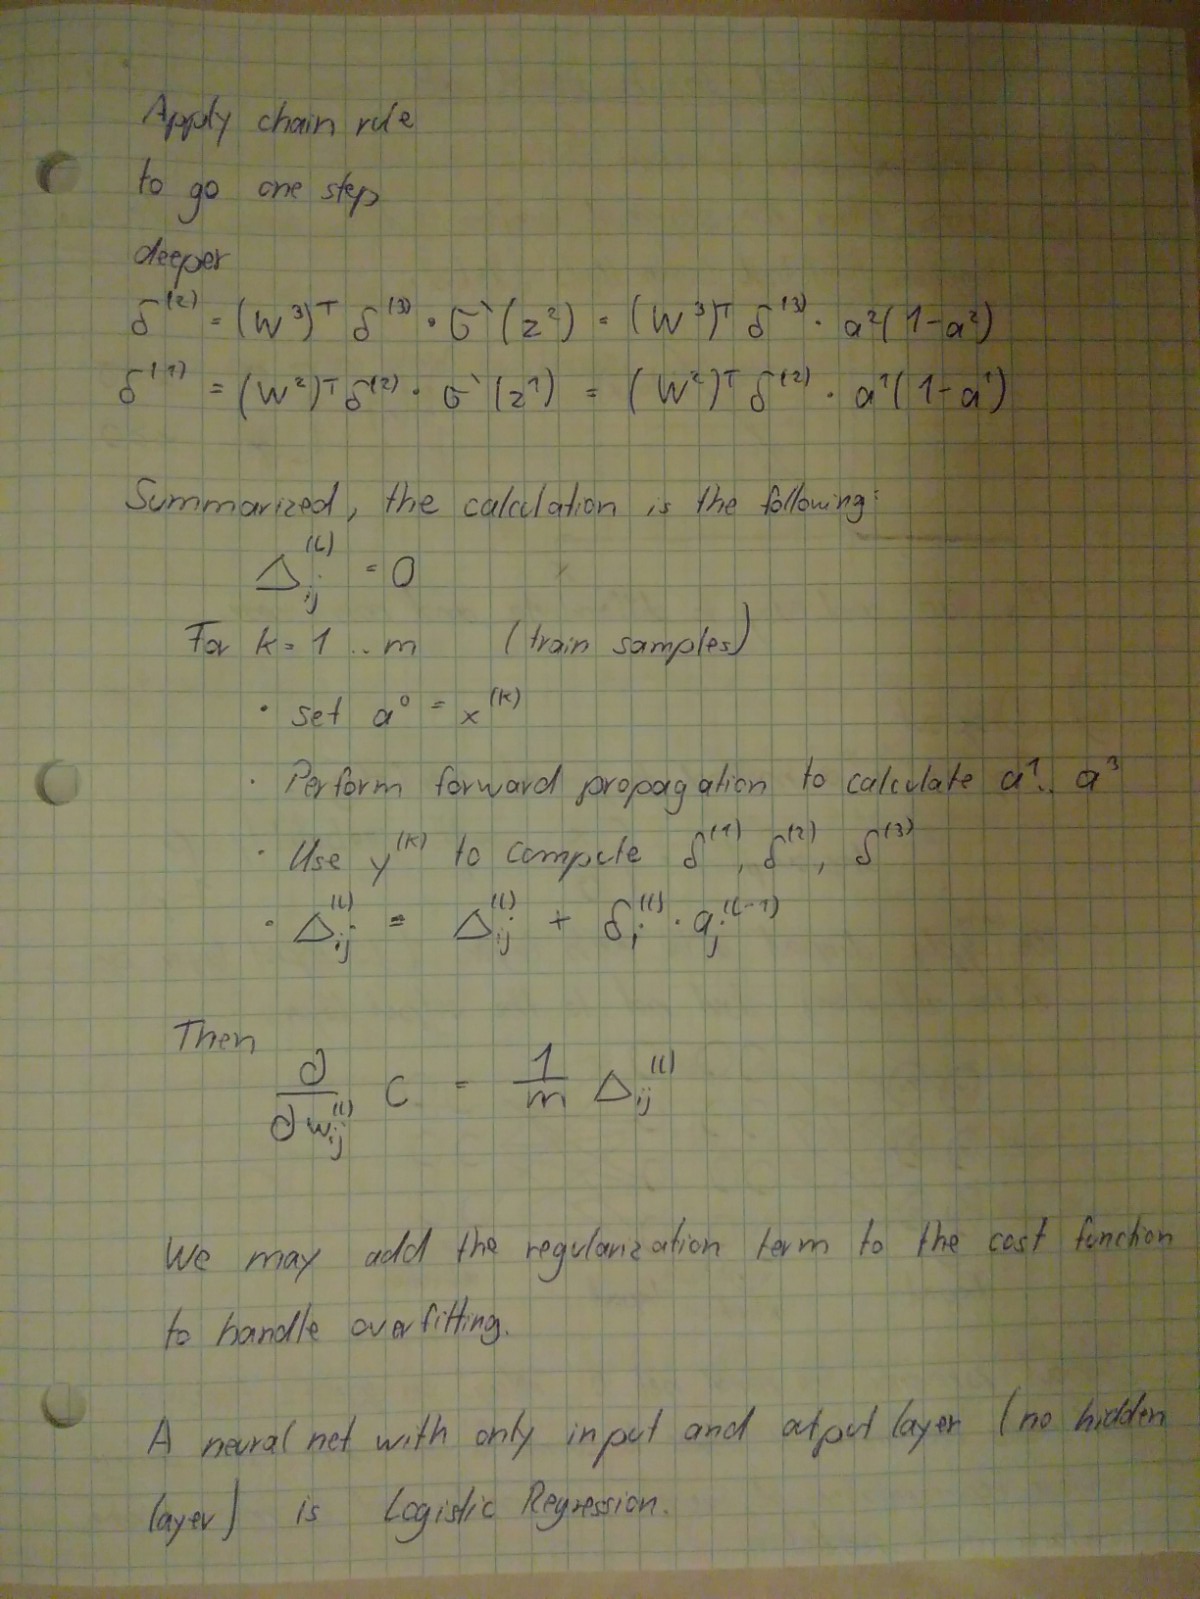 Apply chain rule
to go one step
deeper
δ⁽²⁾ = (W³)ᵀ δ⁽³⁾ · σ`(z²) = (W³)ᵀ δ⁽³⁾ · a²(1-a²)
δ⁽¹⁾ = (W²)ᵀ δ⁽²⁾ · σ`(z¹) = (W²)ᵀ δ⁽²⁾ · a¹(1-a¹)
Summarized, the calculation is the following:
Δᵢⱼ⁽ᴸ⁾ = 0
For k = 1 .. m (train samples)
· set a⁰ = x⁽ᵏ⁾
· Perform forward propagation to calculate a¹.. a³
· Use y⁽ᵏ⁾ to compute δ⁽¹⁾, δ⁽²⁾, δ⁽³⁾
· Δᵢⱼ⁽ᴸ⁾ = Δᵢⱼ⁽ᴸ⁾ + δᵢ⁽ᴸ⁾ · aⱼ⁽ᴸ⁻¹⁾
Then
∂/∂wᵢⱼ⁽ᴸ⁾ C = 1/m Δᵢⱼ⁽ᴸ⁾
We may add the regularization term to the cost function
to handle overfitting.
A neural net with only input and output layer (no hidden
layer) is Logistic Regression.